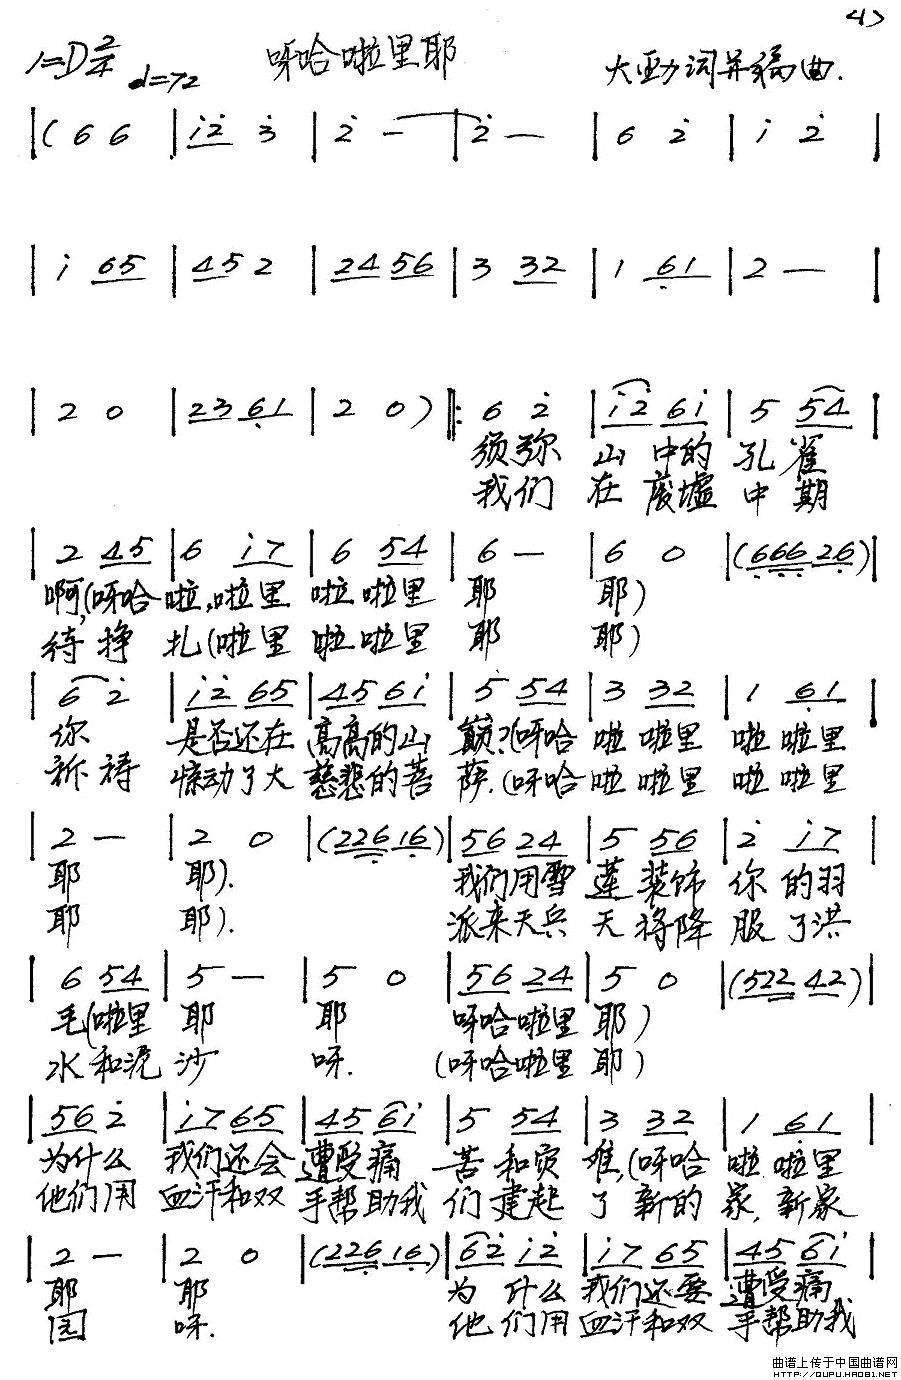 <4>
1=D 2/4 d=72 呀哈啦里耶 大勐词并编曲.
|(6 6 |i̇2̇ 3̇ |2̇ — |2̇ — |6 2̇ |i̇ 2̇ |
|i̇ 65 |45 2 |24 56 |3 32 |1 6̣1 |2 — |
|2 0 |23 6̣1 |2 0) ‖: 6 2̇ |i̇2̇ 6i̇ |5 54 |
须弥 山 中的 孔 雀
我们 在 废墟 中 期
|2 45 |6 i̇7 |6 54 |6 — |6 0 |(6̣6̣6̣ 26̣)|
啊,(呀哈 啦,啦里 啦 啦里 耶 耶)
待 挣 扎(啦里 啦 啦里 耶 耶)
|6 2̇ |i̇2̇ 65 |45 6i̇ |5 54 |3 32 |1 6̣1 |
你 是否还在 高高的山 巅?(呀哈 啦 啦里 啦 啦里
祈 祷 惊动了大 慈悲的菩 萨.(呀哈 啦 啦里 啦 啦里
|2 — |2 0 |(226̣ 16̣)|56 24 |5 56 |2̇ i̇7 |
耶 耶).
我们用雪 莲 装饰 你 的羽
耶 耶).
派来天兵 天 将降 服 了洪
|6 54 |5 — |5 0 |56 24 |5 0 |(522 42)|
毛(啦里 耶 耶 呀哈啦里 耶)
水 和泥 沙 呀. (呀哈啦里 耶)
|56 2̇ |i̇7 65 |45 6i̇ |5 54 |3 32 |1 6̣1 |
为什么 我们还会 遭受痛 苦 和灾 难,(呀哈 啦 啦里
他们用 血汗和双 手帮助我 们 建起 了 新的 家, 新家
|2 — |2 0 |(226̣ 16̣)|62̇ i̇2̇ |i̇7 65 |45 6i̇ |
耶 耶 为 什么 我们还要 遭受痛
园 呀. 他 们用 血汗和双 手帮助我
曲谱上传于中国曲谱网
HTTP://QUPU.HAO81.NET